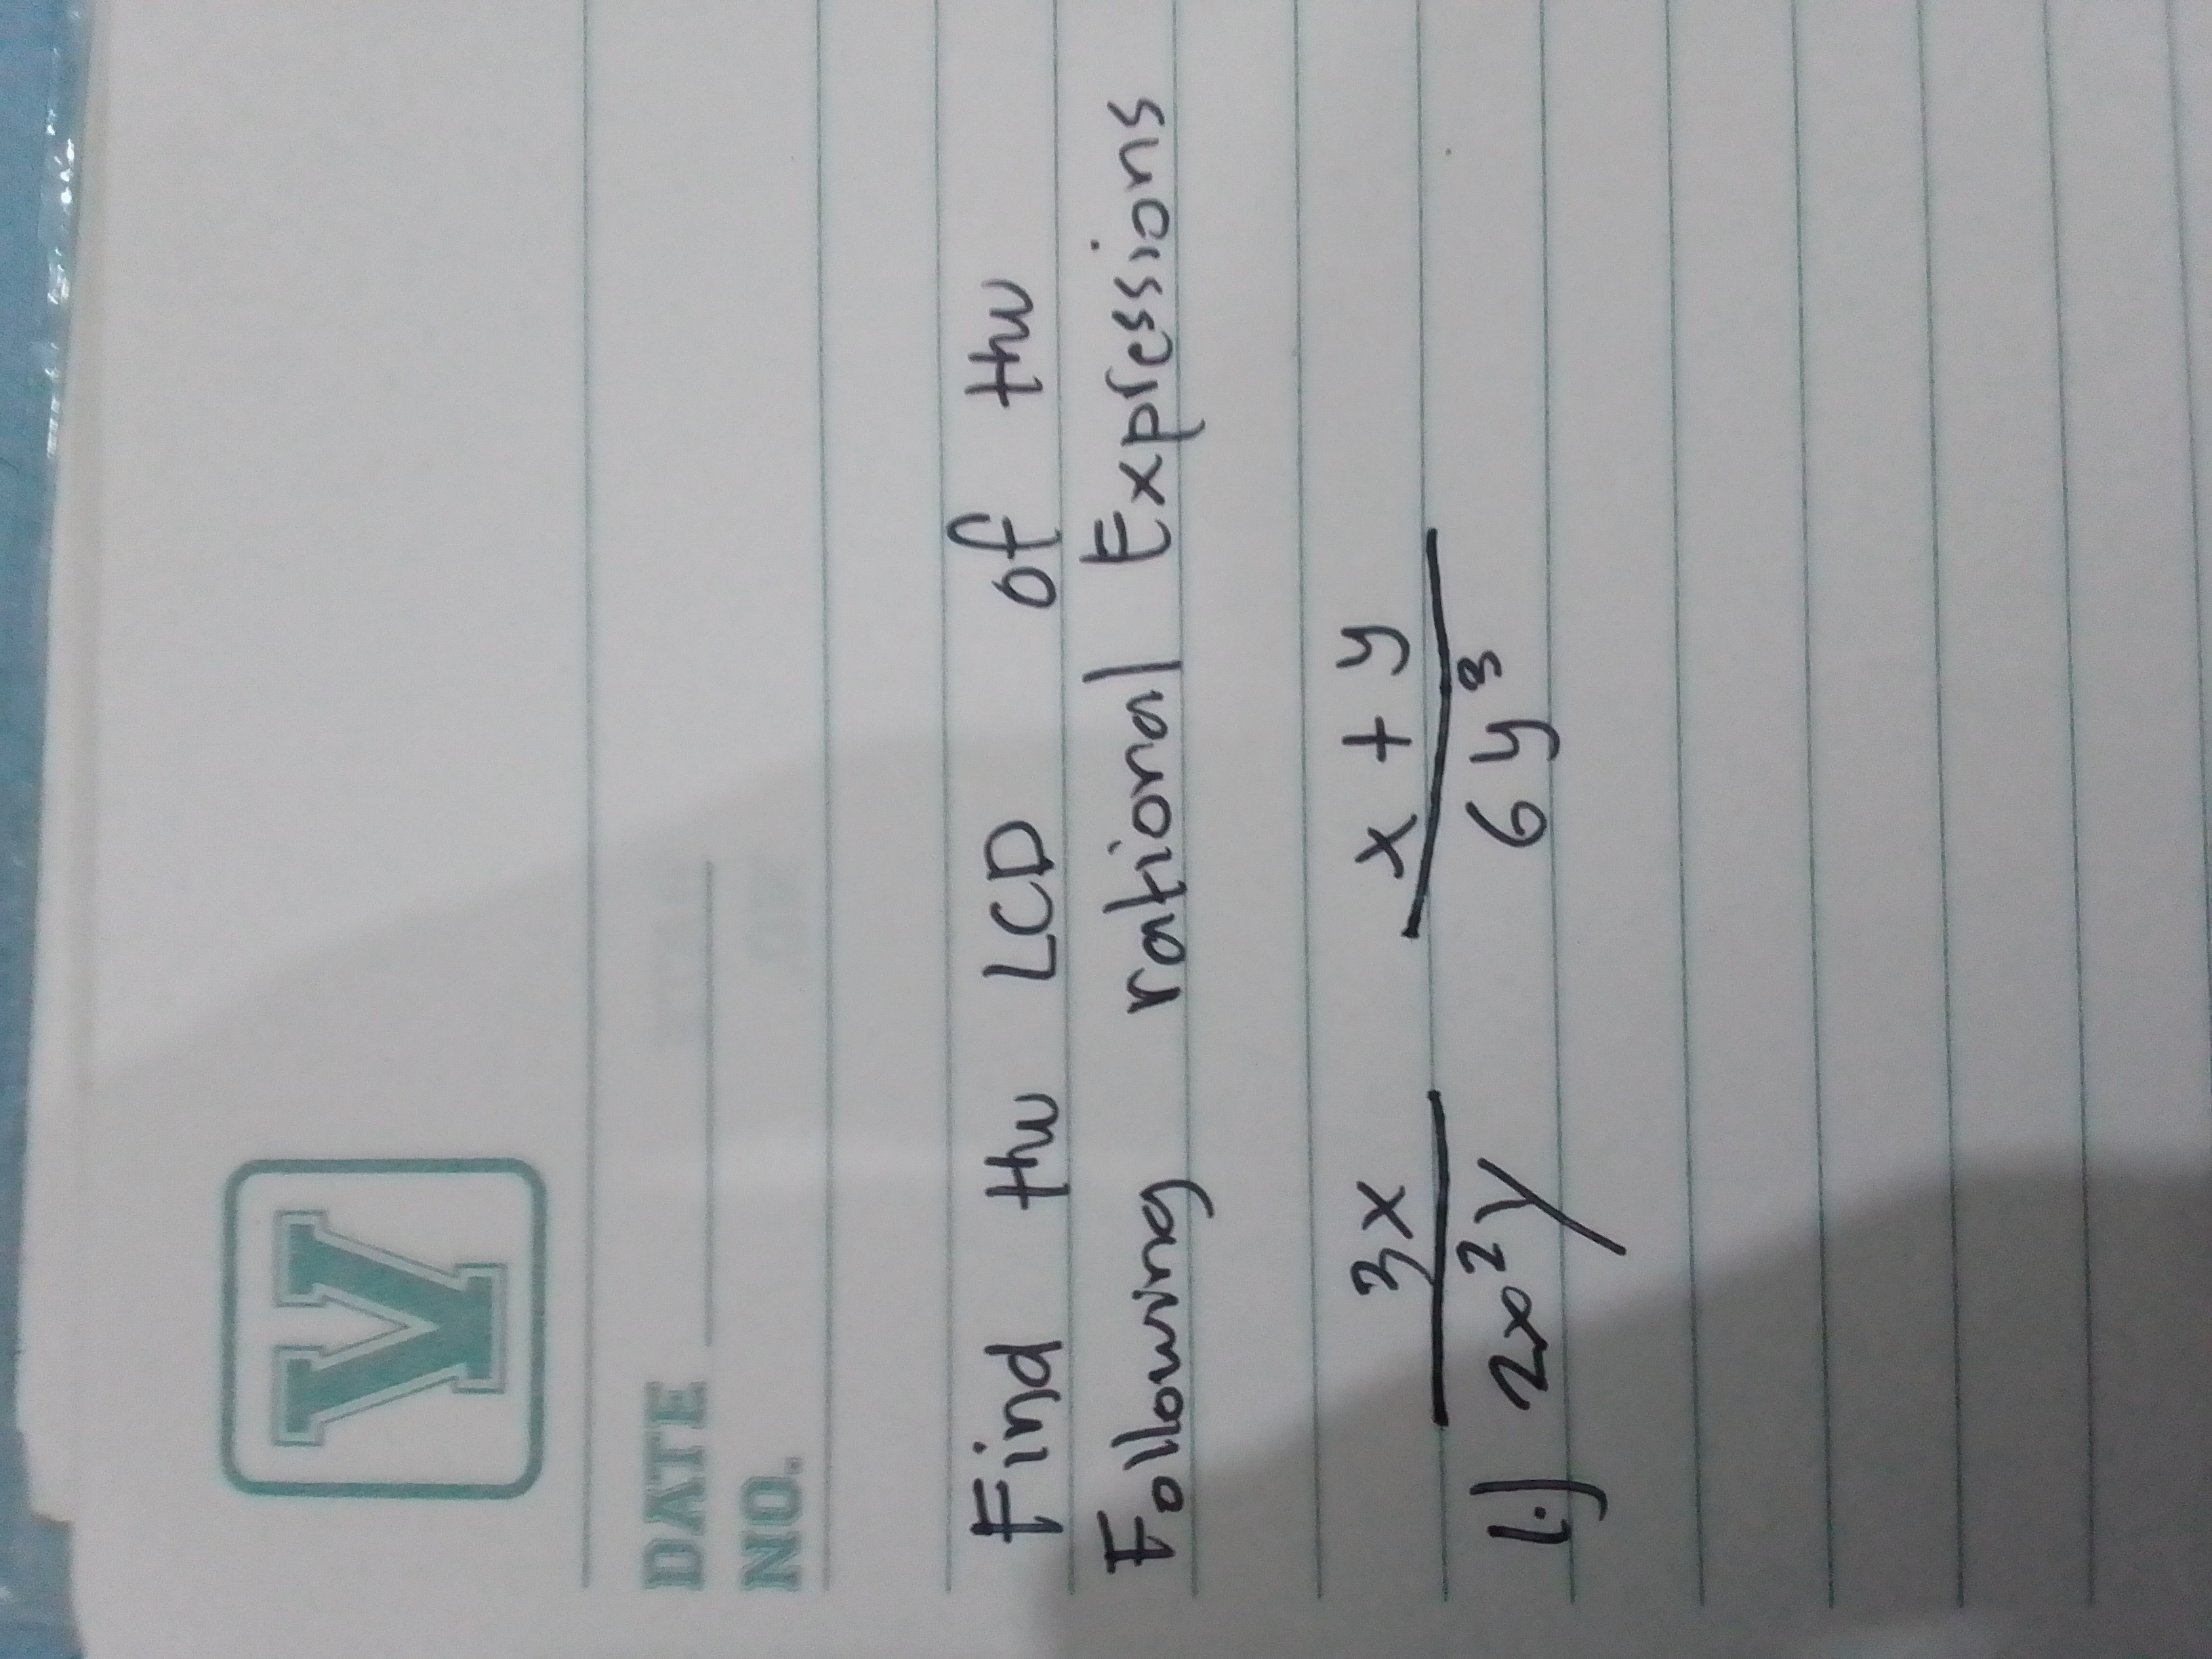 V
DATE
NO.
Find the LCD of the
Following rational Expressions
3x x + y
1.) 2x²y 6y³